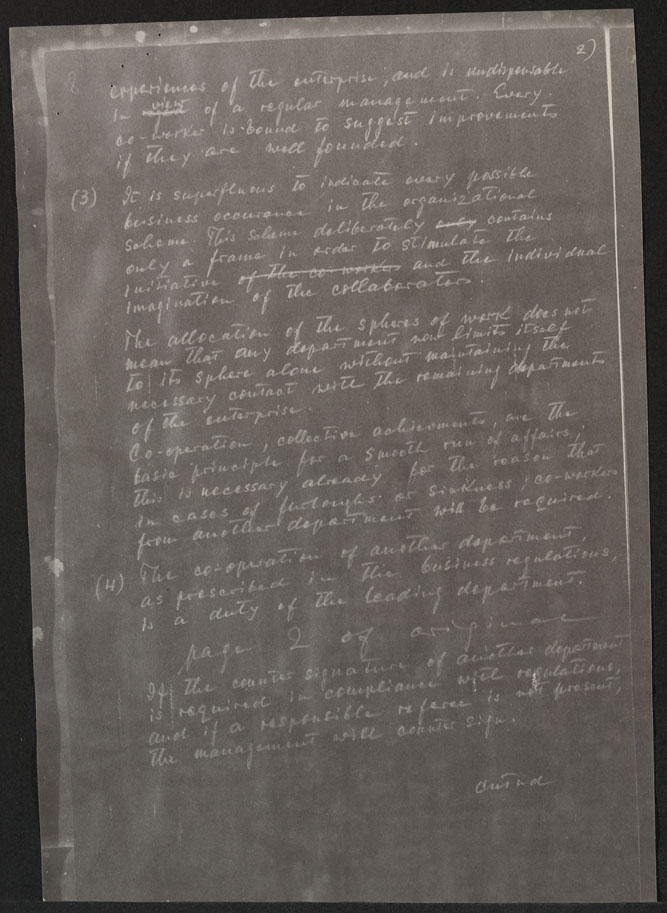 2)
experiences of the enterprise, and is undispensable
in view of a regular management. Every
co-worker is bound to suggest improvements
if they are well founded.
(3) It is superfluous to indicate every possible
business occurance in the organizational
scheme. This scheme deliberately only contains
only a frame in order to stimulate the
initiative of the co-worker and the individual
imagination of the collaborators.
The allocation of the spheres of work does not
mean that any department now limits itself
to its sphere alone without maintaining the
necessary contact with the remaining departments
of the enterprise.
Co-operation, collective achievments, are the
basic principle for a smooth run of affairs,
this is necessary already for the reason that
in cases of furloughs or sickness, co-workers
from another department will be required.
(4) The co-operation of another department,
as prescribed in the business regulations,
is a duty of the leading department.
page 2 of original
If the counter signature of another department
is required in compliance with regulations,
and if a responsible referee is not present,
the management will counter sign.